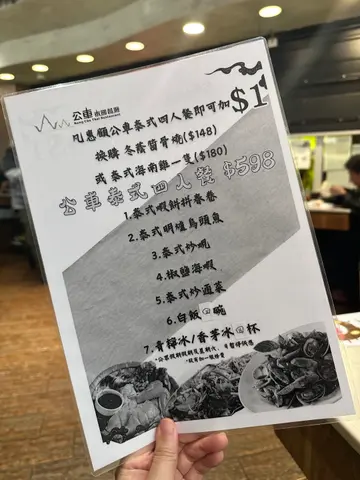 公車 泰國餐廳
凡惠顧公車泰式四人餐即可加$1
換購冬蔭醬骨燒($148)
或泰式海南雞一隻($180)
公車泰式四人餐 $598
1.泰式蝦餅拼春卷
2.泰式明爐烏頭魚
3.泰式炒蜆
4.椒鹽海蝦
5.泰式炒通菜
6.白飯四碗
7.青檸冰/香茅冰四杯